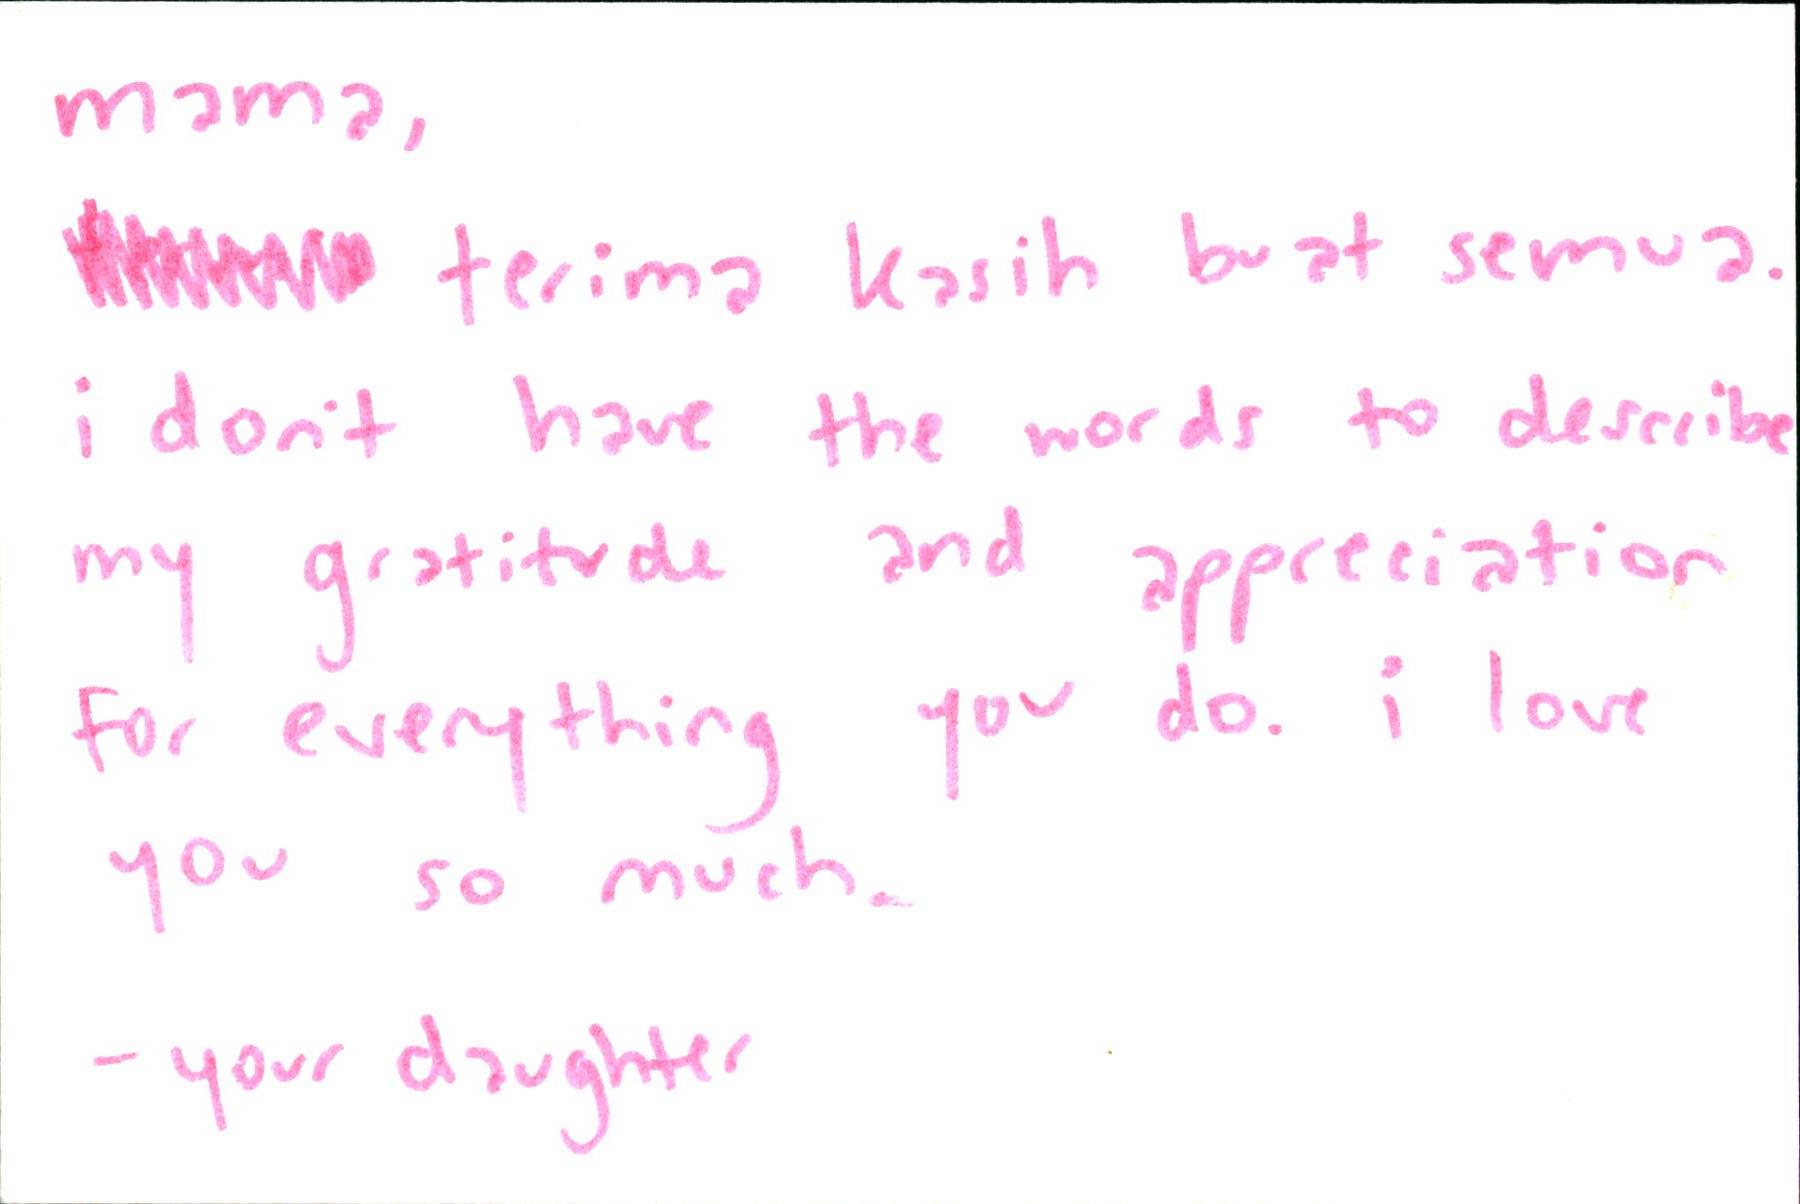 mama,
terima kasih buat semua.
i don't have the words to describe
my gratitude and appreciation
for everything you do. i love
you so much.
- your daughter